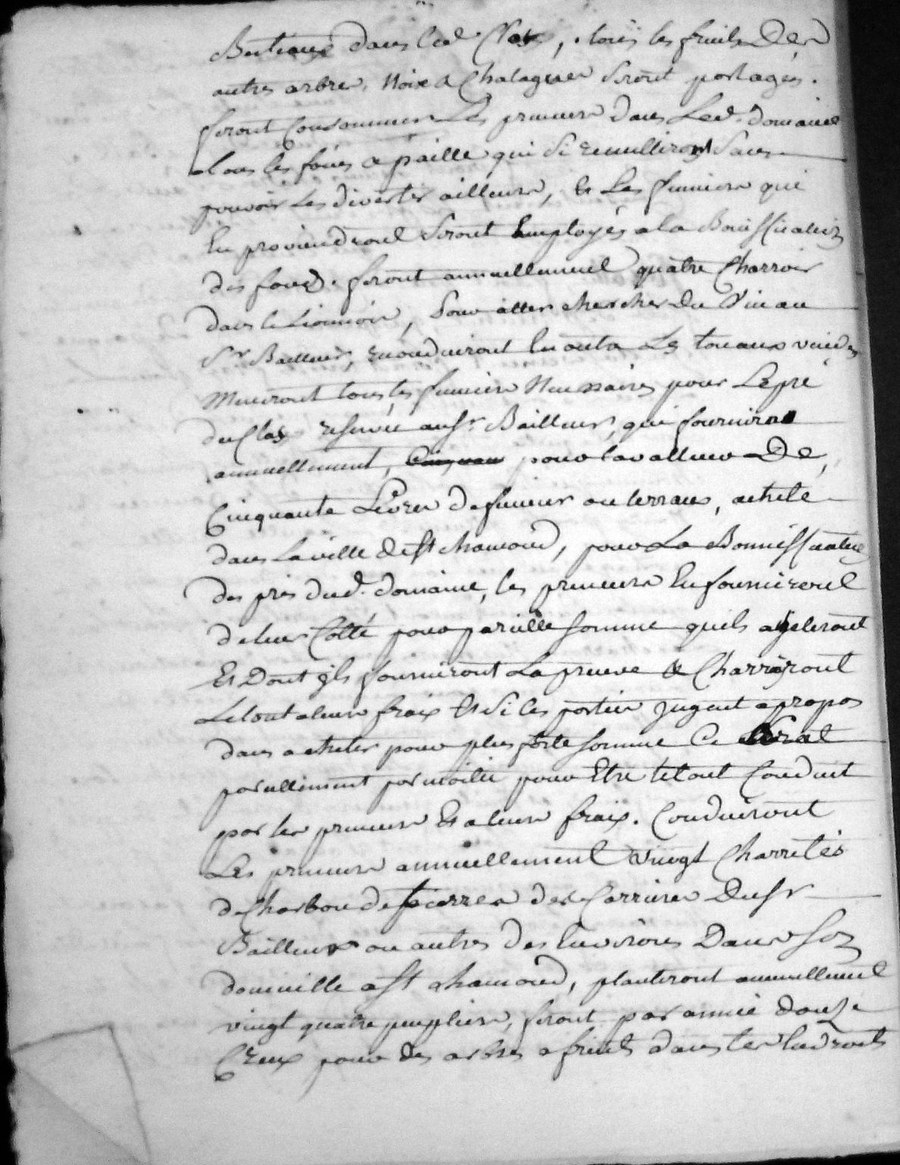 dans led Clos, tous les fruits Des
autres arbres, Noix & Chatagnes seront partagés.
seront Consommer Les preneurs dans Led. domaine
tous les foins & paille qui si Recuilliront Sans
pouvoir Les divertir ailleurs, Et Les fumiers qui
En proviendront seront Employés a la Bonification
des fonds. feront annuellement quatre Charrois
dans le Lionnois, pour aller chercher Du Vin au
Sr. Bailleur, Les tonaux vuides
Meneront tous les fumiers Necessaires pour Le pré
du Clos reservé au sr. Bailleur, qui fournira
annuellement, pour la valleur De
Cinquante Livres de fumier ou terraux, acheté
dans La ville de St chamond, pour La Bonnification
des prés dud. domaine, les preneurs En fourniront
de leur Cotté pour pareille somme quils acheteront
Et Dont ils fourniront La preuve & Charrieront
Le tout a leurs fraix Et Si les parties jugent apropos
dans acheter pour plus forte somme Ce Serat
pareillement par moitié pour Etre le tout Conduit
par les preneurs Et a leurs fraix. Conduiront
Les preneurs annuellement vingt Charretés
de Charbon de pierres des Carrieres Du Sr
Bailleur ou autres des Environs Dans son
domicille a St chamond, planteront annuellement
vingt quatre peupliers, feront par année douze
Creux pour des arbres a fruits dans les Endroits